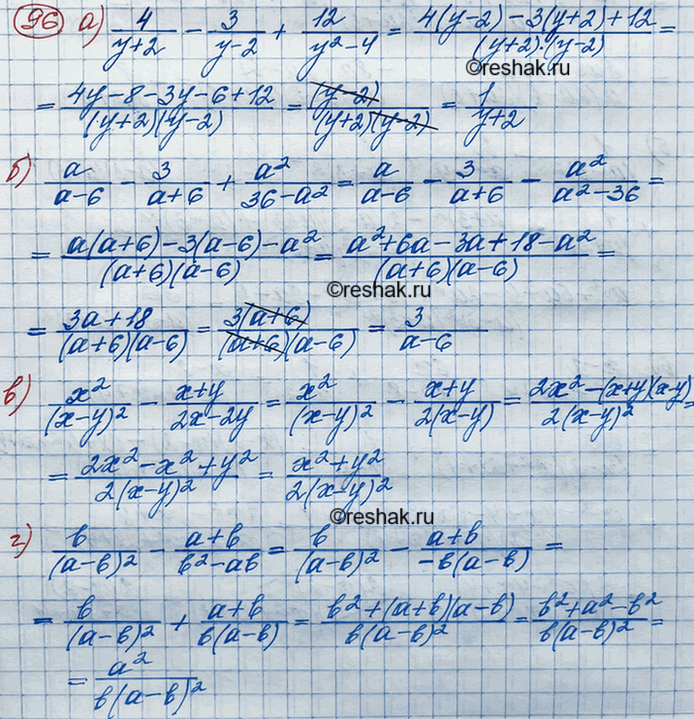 96 а) 4/(y+2) − 3/(y−2) + 12/(y²−4) = (4(y−2)−3(y+2)+12)/((y+2)·(y−2)) =
©reshak.ru
= (4y−8−3y−6+12)/((y+2)(y−2)) = (y−2)/((y+2)(y−2)) = 1/(y+2)
б) a/(a−6) − 3/(a+6) + a²/(36−a²) = a/(a−6) − 3/(a+6) − a²/(a²−36) =
= (a(a+6)−3(a−6)−a²)/((a+6)(a−6)) = (a²+6a−3a+18−a²)/((a+6)(a−6)) =
©reshak.ru
= (3a+18)/((a+6)(a−6)) = 3(a+6)/((a+6)(a−6)) = 3/(a−6)
в) x²/(x−y)² − (x+y)/(2x−2y) = x²/(x−y)² − (x+y)/(2(x−y)) = (2x²−(x+y)(x−y))/(2(x−y)²)
= (2x²−x²+y²)/(2(x−y)²) = (x²+y²)/(2(x−y)²)
©reshak.ru
г) b/(a−b)² − (a+b)/(b²−ab) = b/(a−b)² − (a+b)/(−b(a−b)) =
= b/(a−b)² + (a+b)/(b(a−b)) = (b²+(a+b)(a−b))/(b(a−b)²) = (b²+a²−b²)/(b(a−b)²) =
= a²/(b(a−b)²)